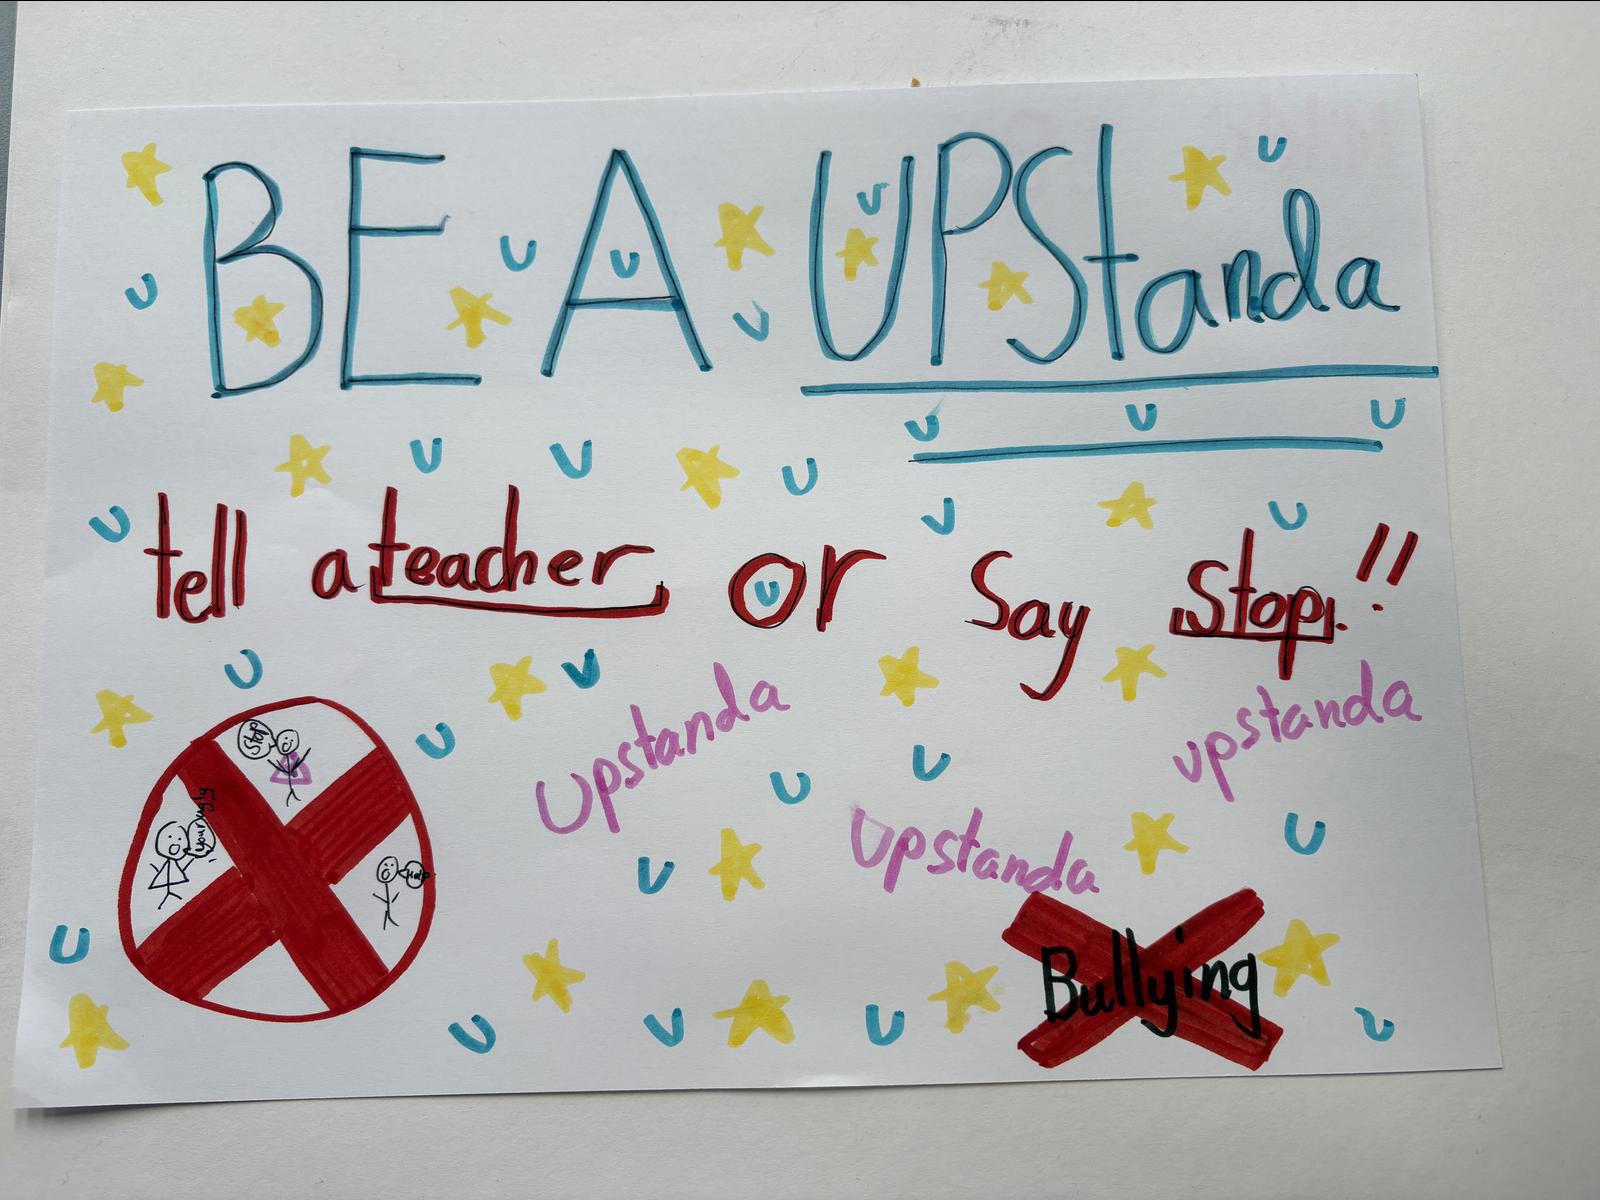 BE A UPStanda
tell a teacher or say stop!!
upstanda
Upstanda
Upstanda
Stop
your ugly
Help
Bullying